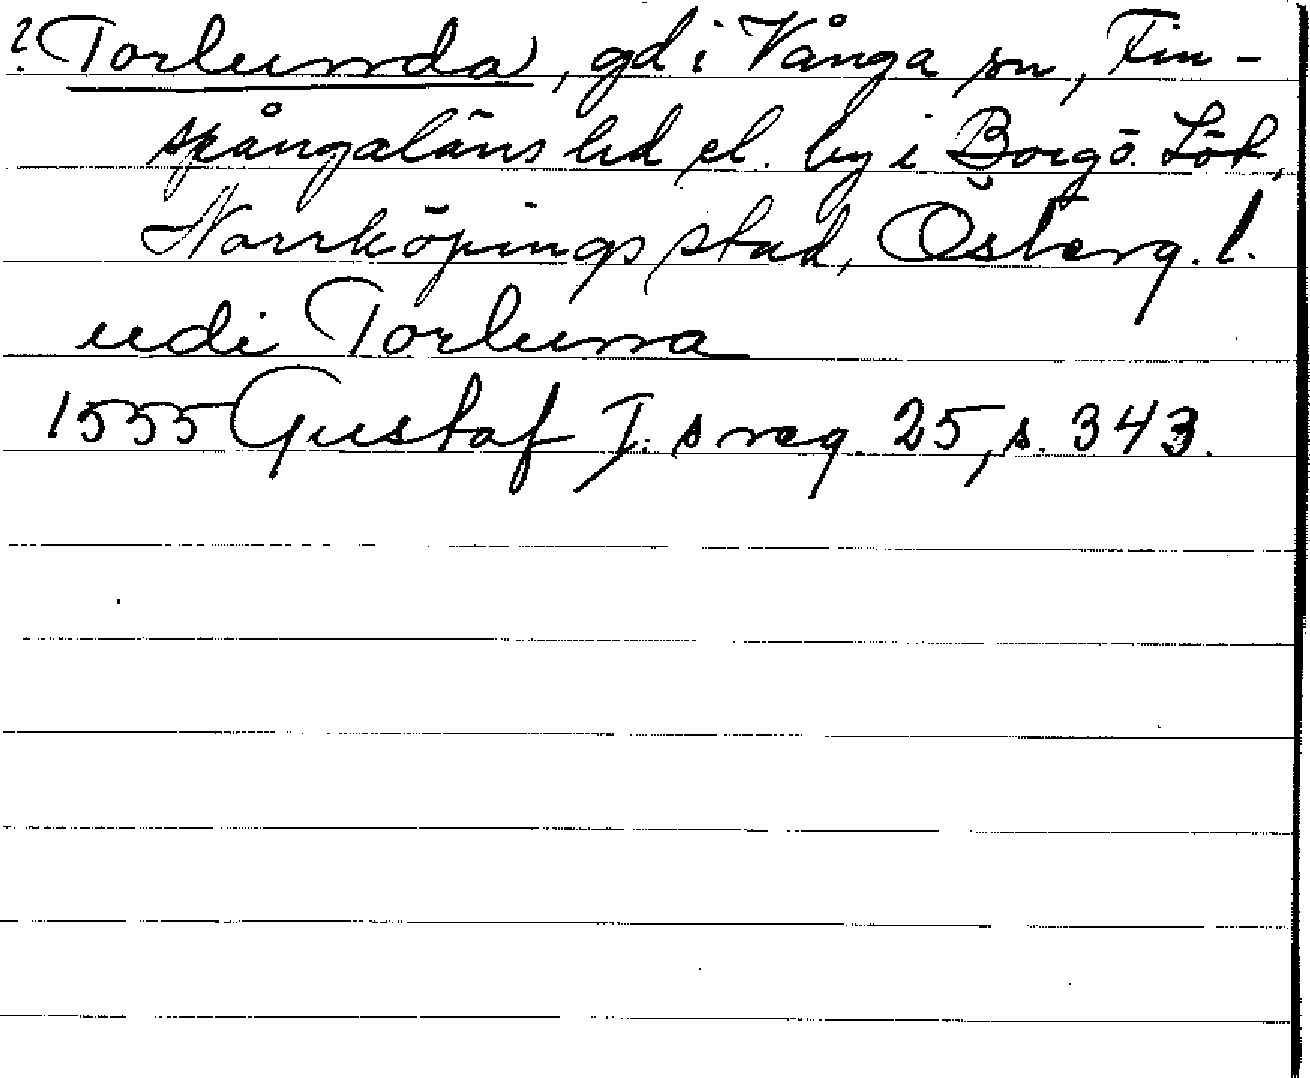 ? Torlunda, gd i Vånga sn, Fin-
spångaläns hd el. by i Borg o. Löt,
Norrköpings stad, Österg. l.
udi Torlunna
1555 Gustaf I:s reg. 25, s. 343.